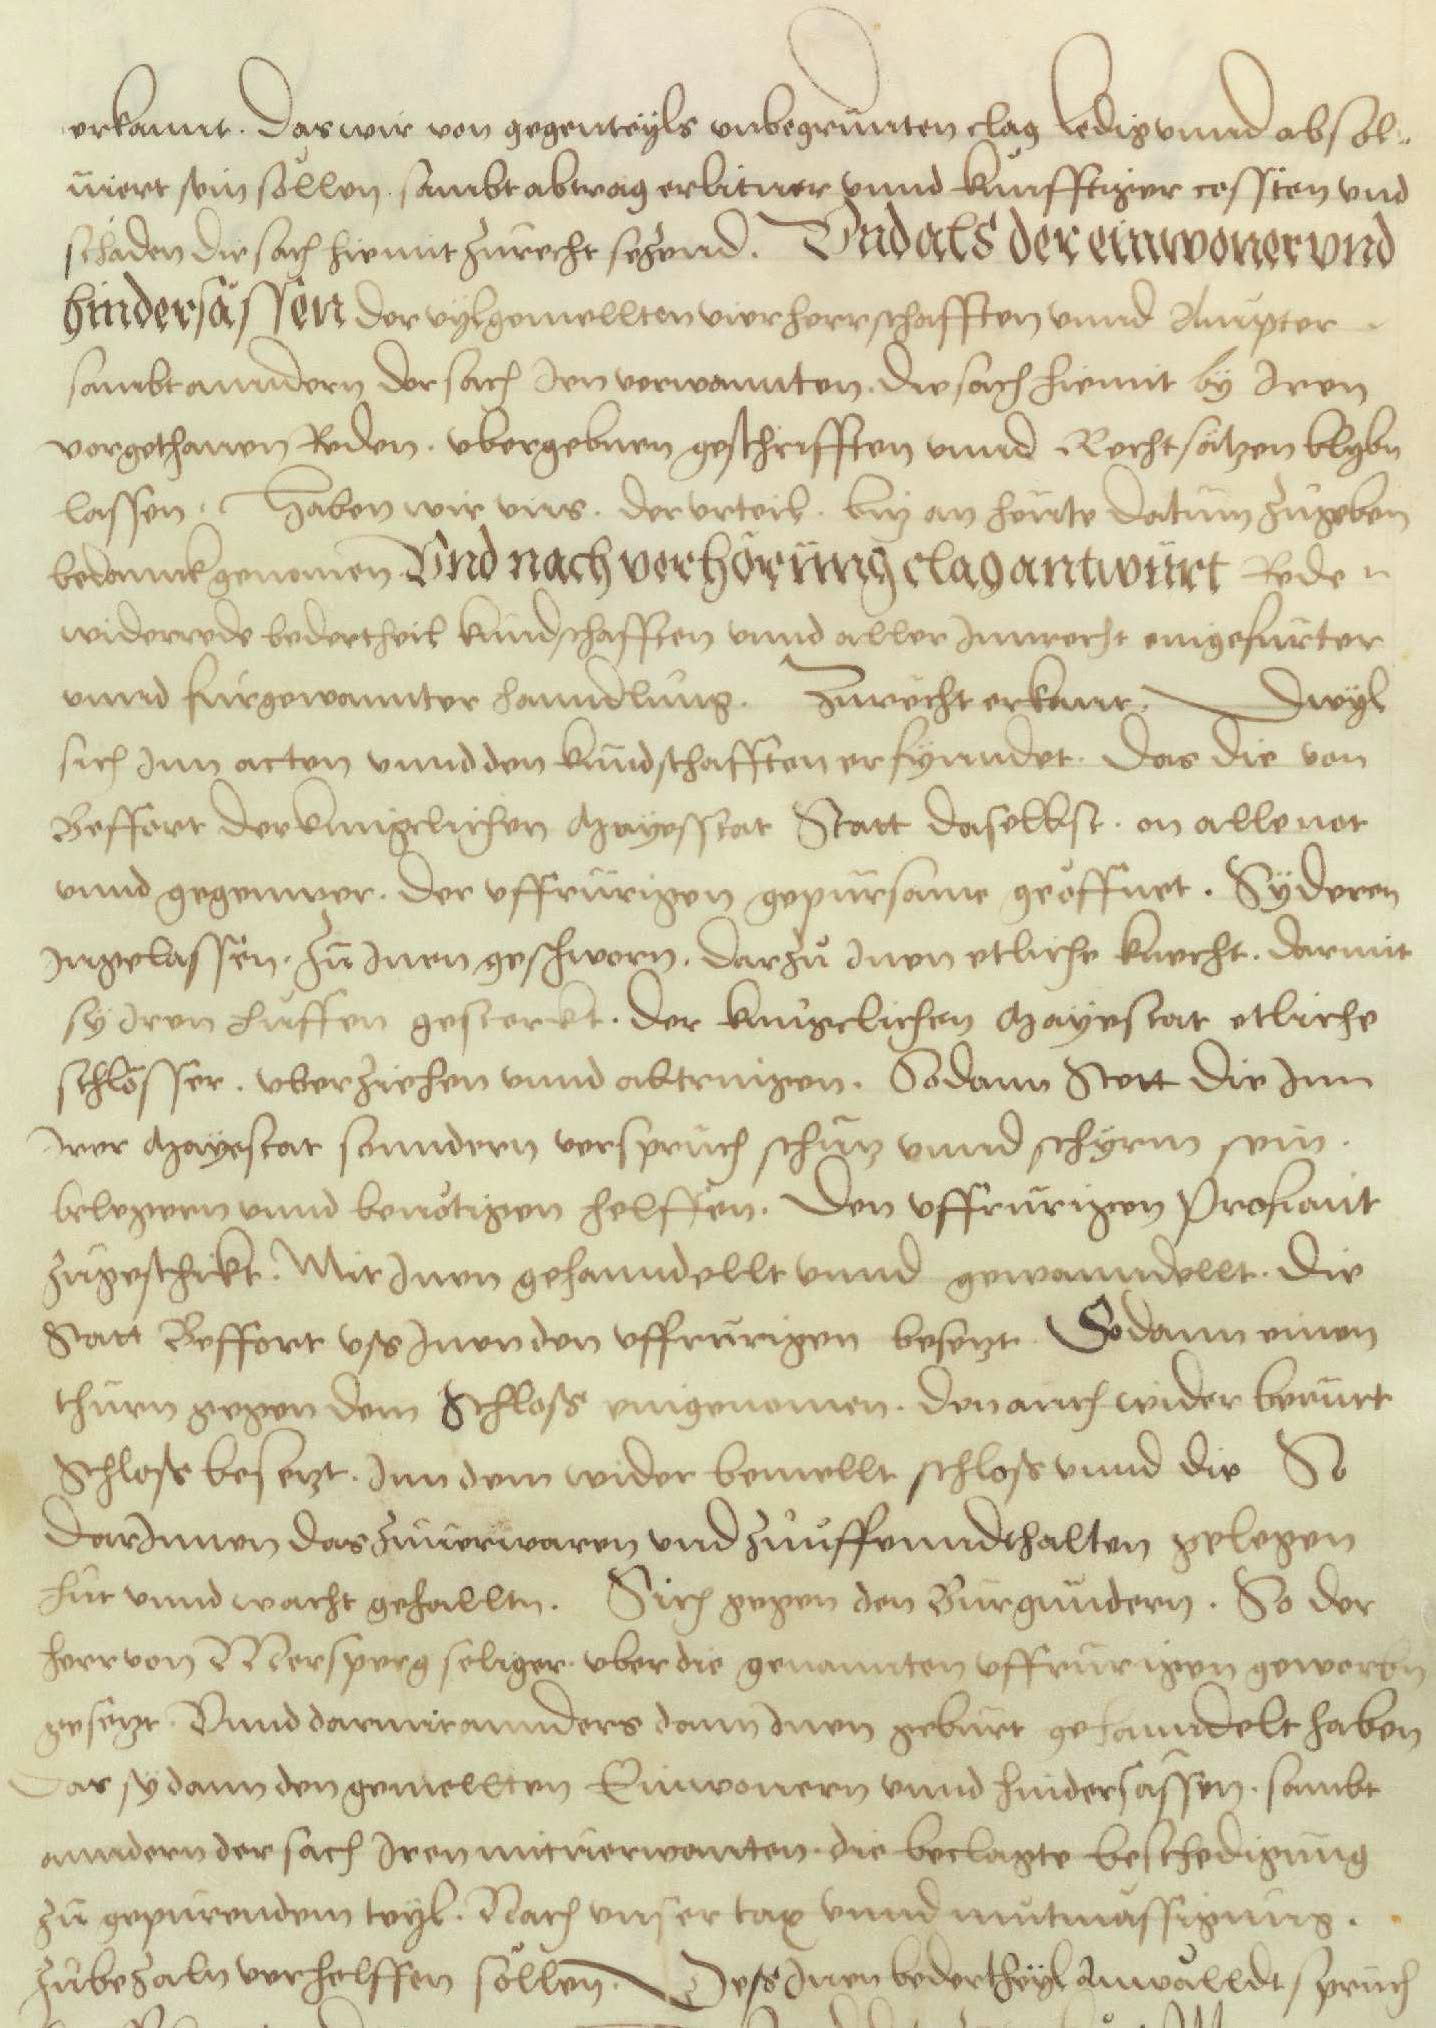 erkannt. Das wir von gegenteyls unbegrünten clag ledig unnd absol-
uiert sein söllen. sambt abtrag erlitner unnd künfftiger costen und
schäden die sach hiemit zurecht setzend. Und als der einwoner und
hindersässen der vylgemellten vier herrschafften unnd Ämpter
sambt anndern der sach Iren verwannten. die sach hiemit by Iren
vorgethanen Reden. ubergebnen geschrifften unnd Rechtsätzen blybn
lassen. Haben wir uns. der urteil. biß an heute datum zugeben
bedannck genomen Und nach verhörung clag antwürt Rede
widerrede bedertheil kundschafften unnd aller Innrecht eingefürter
unnd fürgewannter hanndlung. Zurecht erkant. Dwyl
sich Inn acten unnd den kundschafften erfynndet. Das die von
Beffort der kunigclichen Mayestat Statt daselbst. on alle not
unnd gegenwer. der uffrürigen gepursame geöffnet. Sy deren
Ingelassen. zu Inen geschworn. darzu Inen etliche knecht. darmit
sy Iren huffen gesterkt. der kunigclichen Mayestat etliche
schlösser. uberziehen unnd abtrungen. Sodann Stett die Inn
Irer Mayestat sonndern verspruch schutz unnd schyrm sein.
belegern unnd benötigen helffen. Den uffrürigen Profiant
zugeschikt. Mit Inen gehanndellt unnd gewanndellt. die
Statt Beffort uss Inen den uffrürigen besetzt. Sodann einen
thurn gegen dem Schloss eingenomen. den auch wider berürt
Schloss besetzt. Inn dem wider bemellt schloss unnd die So
darInnen das zuverwaren und zuuffenndthalten gelegen
hut unnd wacht gehalltn. Sich gegen den Burgundern. So der
herr von Mersperg seliger. uber die genannten uffrürigen geworbn
gesetzt. Unnd darmit annders dann Inen gebürt gehanndelt haben
Das sy dann den gemellten Einwonern unnd hindersässen. sambt
anndern der sach Iren mitverwanten. die beclagte beschedigung
zu gepürendem teyl. Nach unser tax unnd mutmassigung.
zubezaln verhelffen söllen. Dess Inen bedertheyl Anwälldt spruch